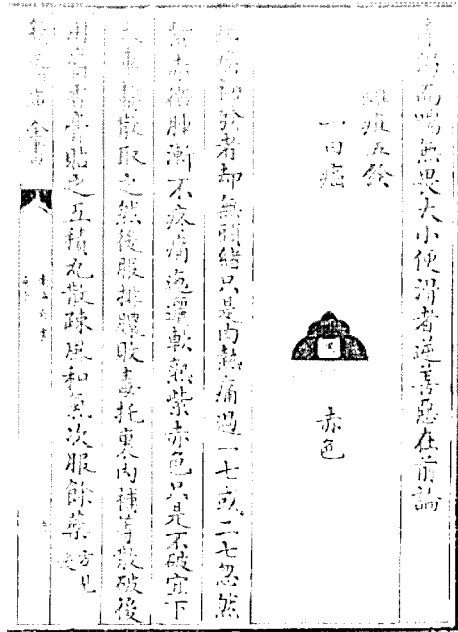 而喘無畏大小便滑者逆善惡在前論
癰疽五發
一曰癌
赤色
初發者却無頭緒只是肉熱痛過一七或二七忽然
紫赤微腫漸不疼痛迤邐軟熟紫赤色只是不破宜下
大車螯散取之然後服排膿敗毒托裏內補等散破後
用麝香膏貼之五積丸散疎風和氣次服餘藥方見後
欽定四庫全書